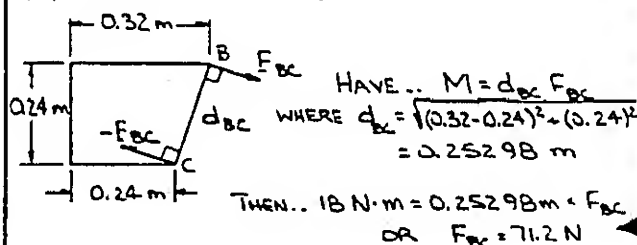 0.32 m
B
F_BC
0.24 m
d_BC
-F_BC
C
0.24 m
HAVE.. M = d_BC F_BC
WHERE d_BC = √(0.32-0.24)² + (0.24)²
= 0.25298 m
THEN.. 18 N·m = 0.25298m × F_BC
OR F_BC = 71.2 N